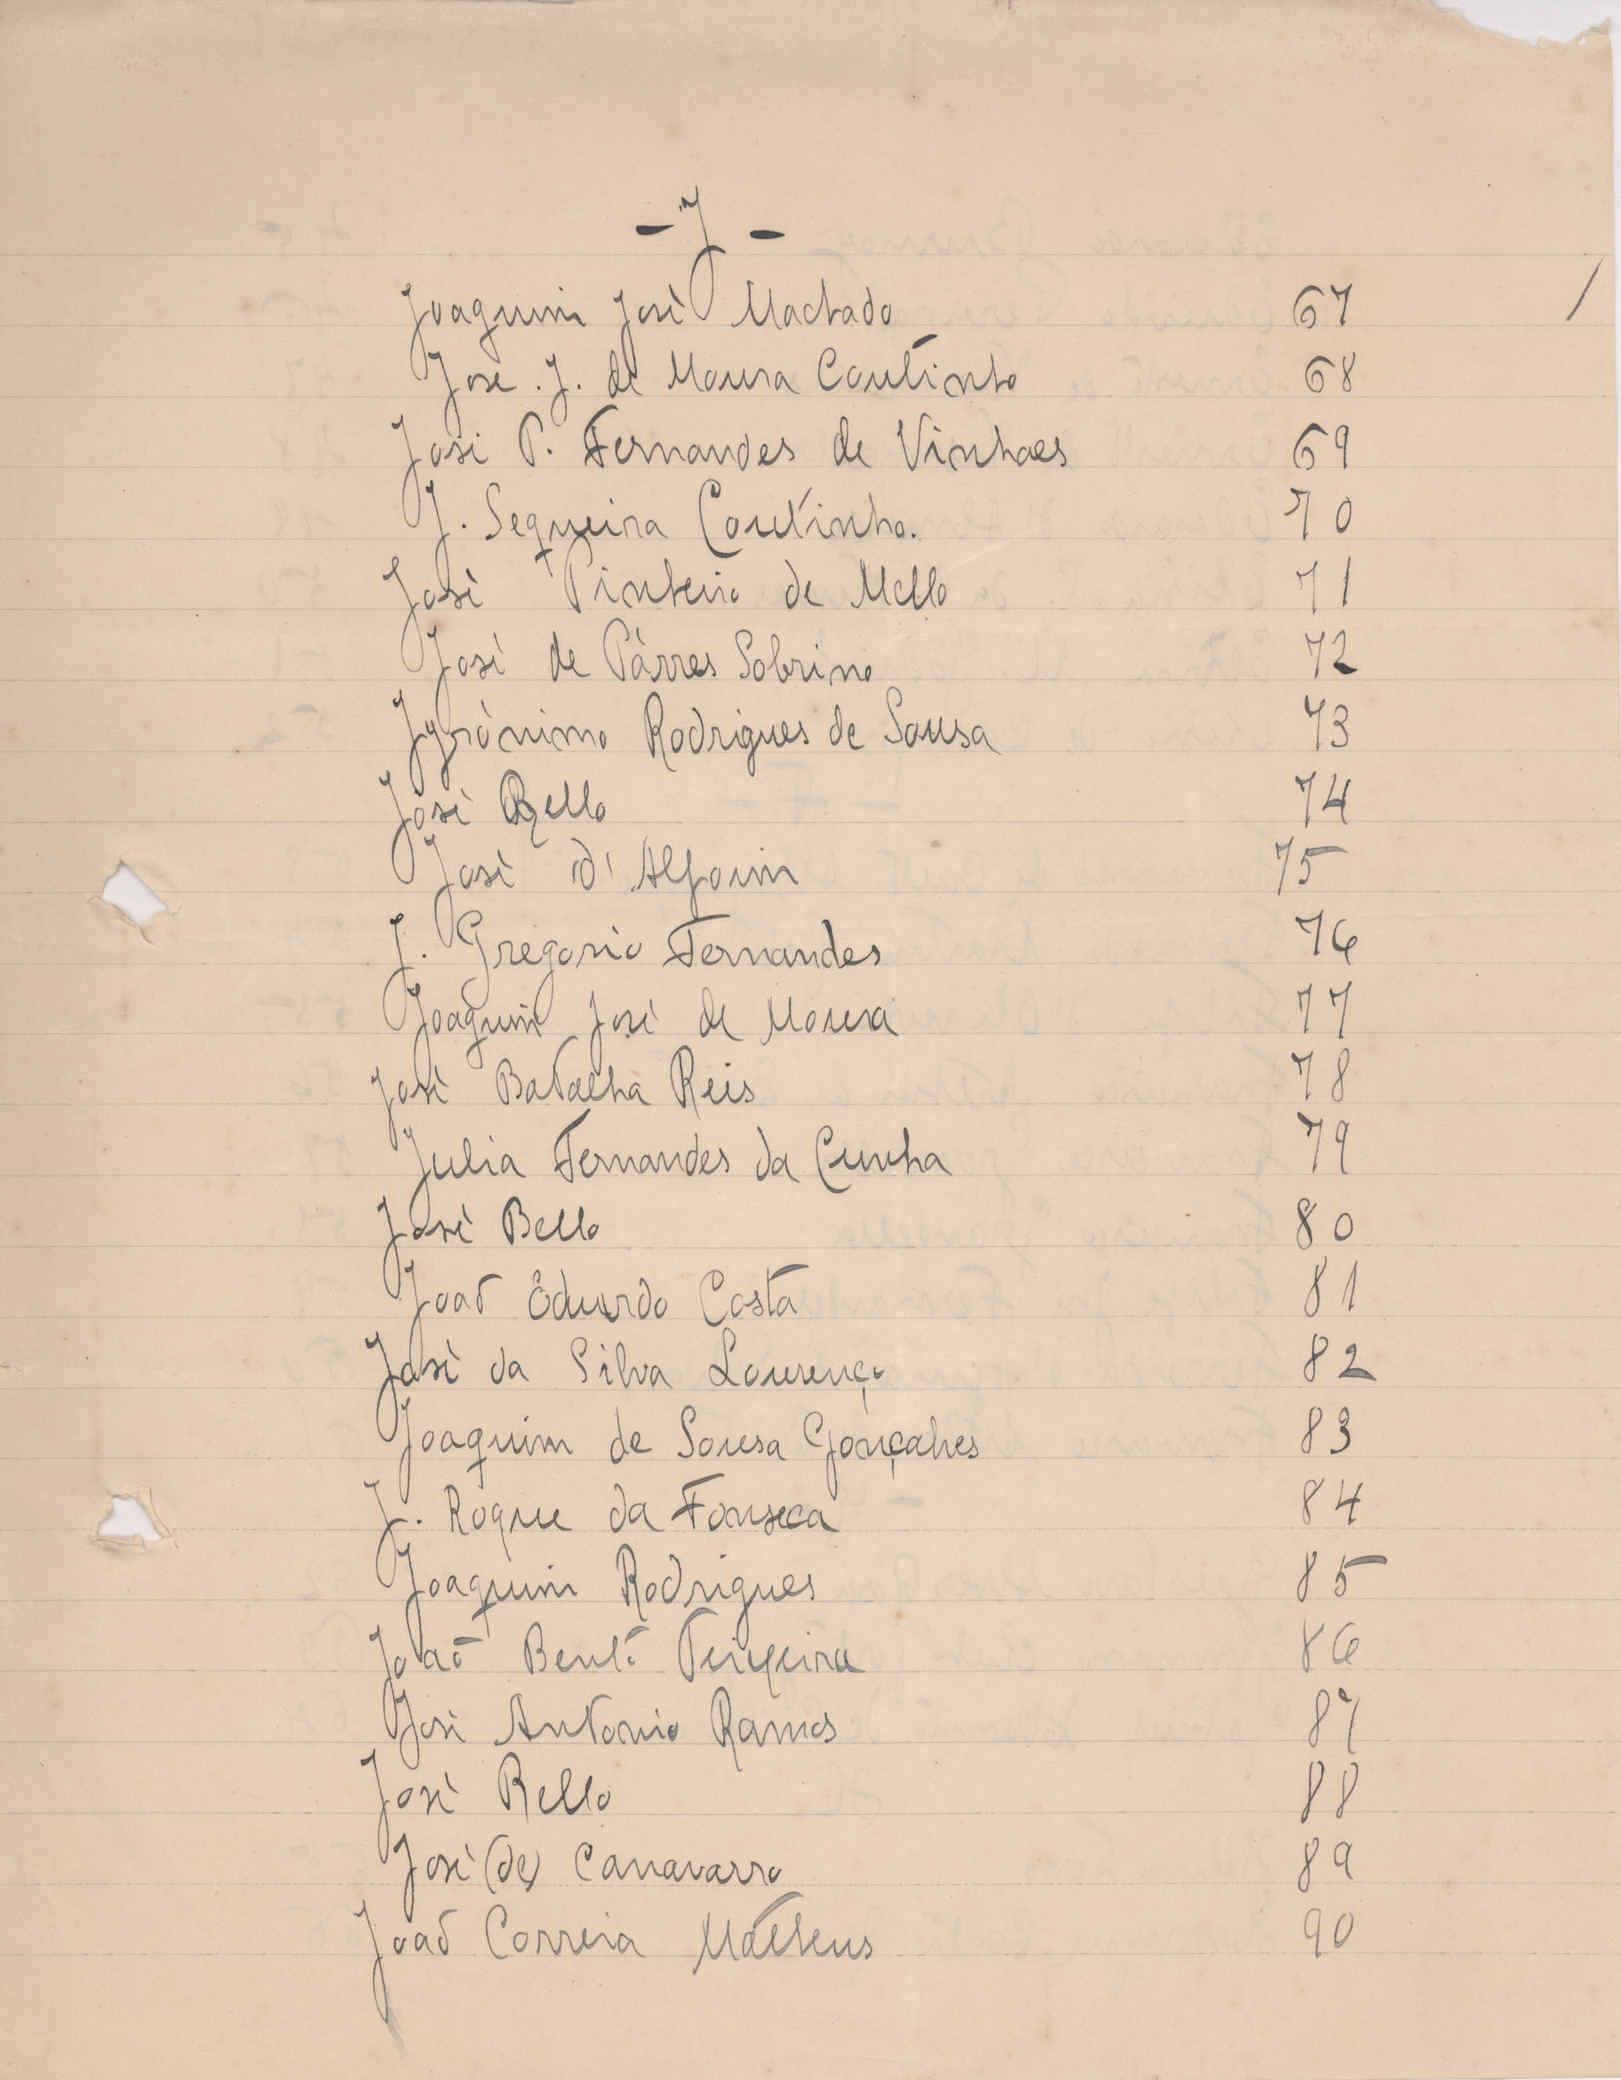 - J -
Joaquim José Machado 67
José. J. de Moura Coutinho 68
José P. Fernandes de Vinhaes 69
J. Sequeira Coutinho. 70
José Pinheiro de Mello 71
José de Párres Sobrino 72
Jyrónimo Rodrigues de Sousa 73
José Bello 74
José d'Alpoim 75
J. Gregorio Fernandes 76
Joaquim José de Moura 77
José Batalha Reis 78
Julia Fernandes da Cunha 79
José Bello 80
João Eduardo Costa 81
José da Silva Lourenço 82
Joaquim de Sousa Gonçalves 83
J. Roque da Fonseca 84
Joaquim Rodrigues 85
João Bento Teixeira 86
José Antonio Ramos 87
José Bello 88
José (de) Canavarro 89
João Correia Matheus 90